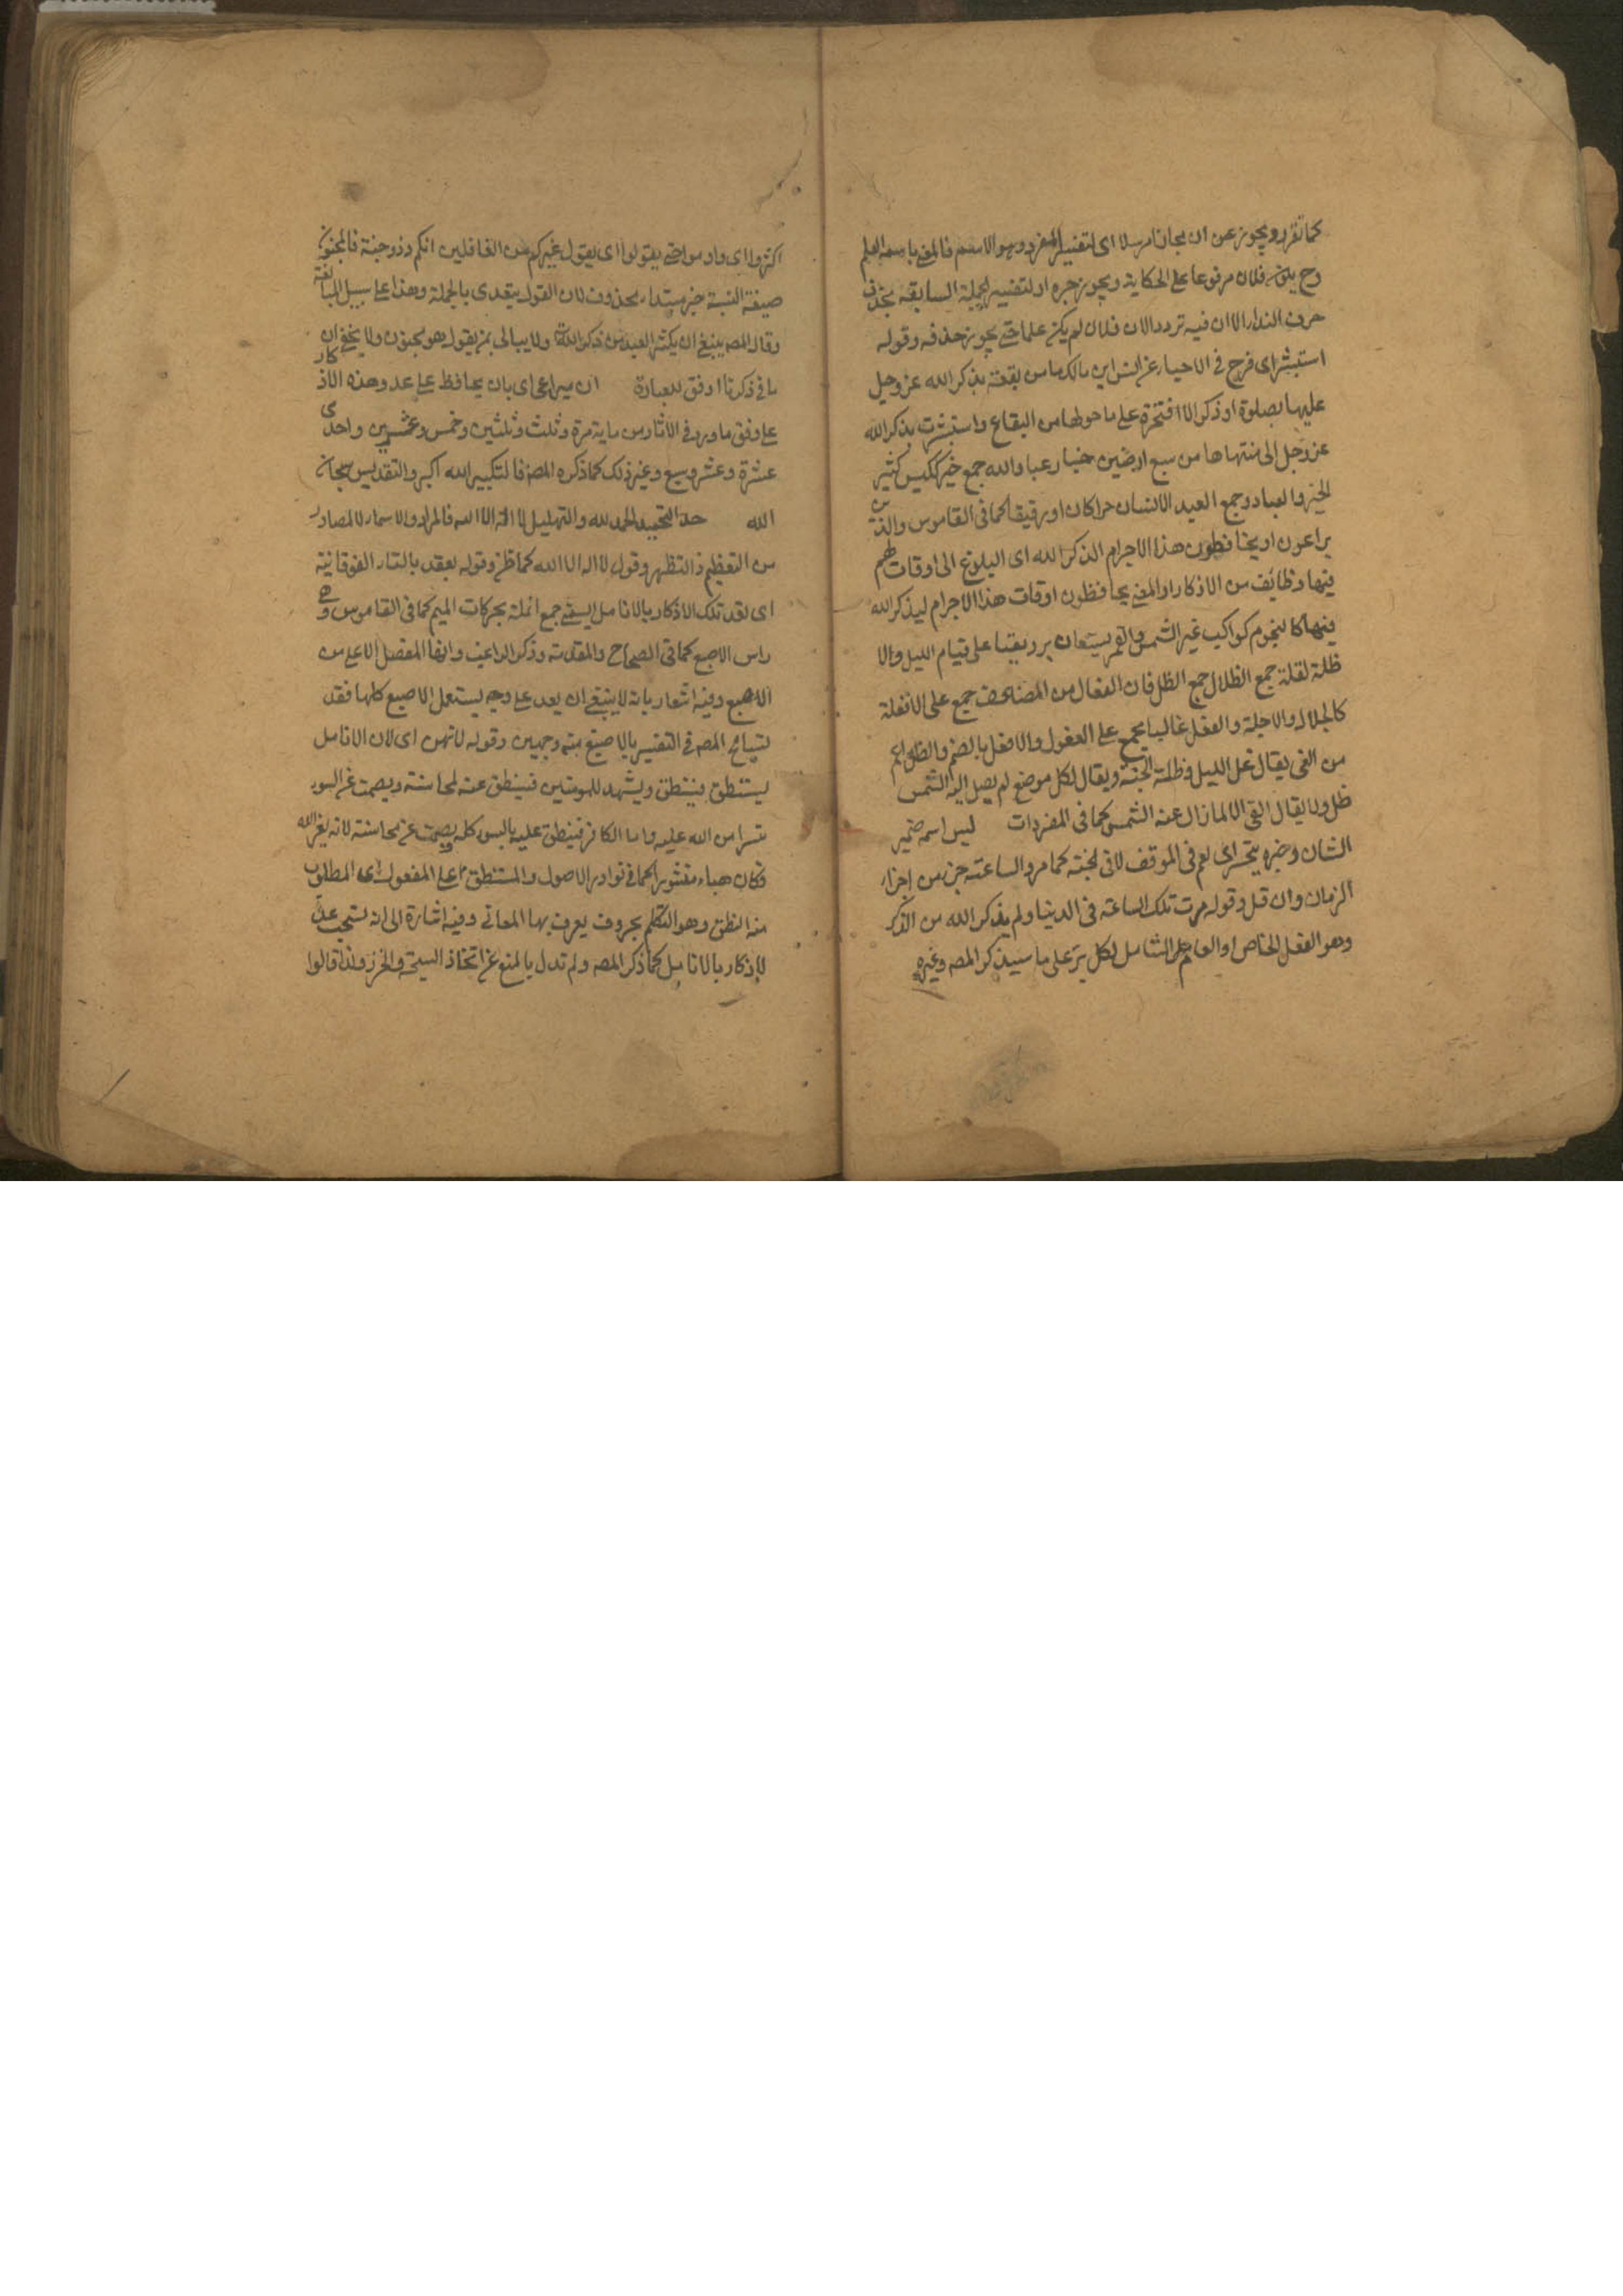 كما تقرر ويجوز عن ان مجازا مرسلا اى لتفسير المفرد وهو الاسم فالمعنى باسمه العلم
وح يكون فلان مرفوعا على الحكاية ويجوز جره او لتفسير الجملة السابقة بحذف
حرف النداء الا ان فيه ترددا لان فلان لم يكن علما حتى يجوز حذفه وقوله
استبشر اى فرح فى الاحياء عن انس ابن مالك ما من بقعة يذكر الله عز وجل
عليها بصلوة او ذكر الا افتخرة على ما حولها من البقاع واستبشرت بذكر الله
عز وجل الى منتهاها من سبع ارضين خيار عباد الله جمع خير ككيس كثير
الخير والعباد وجمع العبد الانسان حرا كان او رقيقا كما فى القاموس والذين
يراعون او يحافظون هذا الاجرام الذكر الله اى البلوغ الى اوقات لهم
فيها وظائف من الاذكار او المعنى يحافظون اوقات هذا الاجرام ليذكر الله
فيها كالنجوم كواكب غير الشمس والقمر يستعان برويتها على قيام الليل والا
ظلة لقلة جمع الظلال جمع الظل فان الفعال من المضاعف جمع على الافعلة
كالجلال والاجلة والفعل غالبا يجمع على الفعول والافعل بالضم والظل اعم
من الفى يقال ظل الليل وظلة الجنة ويقال لكل موضع لم يصل اليه الشمس
ظل ولا يقال الفى الا لما زال عنه الشمس كما فى المفردات ليس اسمه ضمير
الشان وخبره يتحسر اى لهم فى الموقف لا فى الجنة كما مر والساعة جزء من اجزاء
الزمان وان قل وقوله مرت تلك الساعة فى الدنيا ولم يذكر الله من الذكر
وهو الفعل الخاص او العام الشامل لكل بر على ما سيذكر المصه وغيره
اكثروا اى وادموا حتى يقولوا اى يقول غيركم من الغافلين انكم ذو جنة فالمجنون
صيغة النسبة خبر مبتداء محذوف لان القول يتعدى بالجملة وهذا على سبيل المبالغة
وقال المصه ينبغى ان يكثر العبد من ذكر الله ولا يبالى بمن يقول هو مجنون ولا يخفى ان
ما فى ذكرنا اوفق للعبارة ان يراعى اى بان يحافظ على عدد هذه الاذكار
على وفق ما ورد فى الاثار من ماية مرة وثلث وثلثين وخمس وعشرين واحدى
عشرة وعشر وسبع وغير ذلك كما ذكره المصه فالتكبير الله اكبر والتقديس سبحان
الله التحميد الحمد لله والتهليل لا اله الا الله فالمراد الاسماء لا المصادر
من التعظيم والتطهر وقول لا اله الا الله كما ظن وقوله يعقد بالتاء الفوقانية
اى تعقد تلك الاذكار بالانامل جمع انملة بحركات الميم كما فى القاموس وهى
راس الاصبع كما فى الصحاح والمقدمة وذكر الراغب وانها المفصل الاعلى من
الاصبع وفيه اشعار بانه لا ينبغى ان يعد على وجه يستعمل الاصبع كلها فقد
تسامح المصه فى التفسير بالاصبع من وجهين وقوله لانهن اى لان الانامل
يستنطق فينطق ويشهد للمومنين فينطق عنه لمحاسنه ويصمت عن السوء
تسرا من الله عليه واما الكافر فينطق عليه بالسوء كله ويصمت عن محاسنه لانه لغير الله
فكان هباء منثورا كما فى نوادر الاصول والمستنطق على المفعول اى المطلوب
منه النطق وهو التكلم بحروف يعرف بها المعانى وفيه اشارة الى انه يستحب عد
الاذكار بالانامل كما ذكر المصه ولم تدل بالمنع عن اتخاذ السبحة والخرز ولذا قالوا